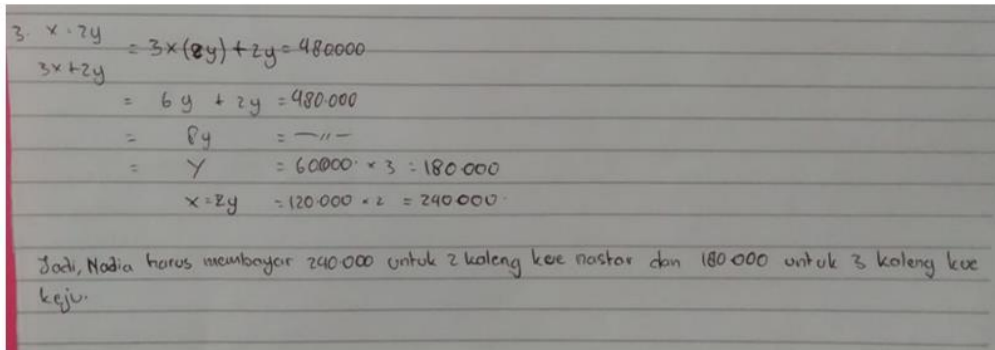 3. x = 2y
3x + 2y = 3x(2y) + 2y = 480000
= 6y + 2y = 480.000
= 8y = —〃—
= y = 60000 × 3 = 180.000
x = 2y = 120.000 × 2 = 240000.
Jadi, Nadia harus membayar 240.000 untuk 2 kaleng kue nastar dan 180.000 untuk 3 kaleng kue
keju.